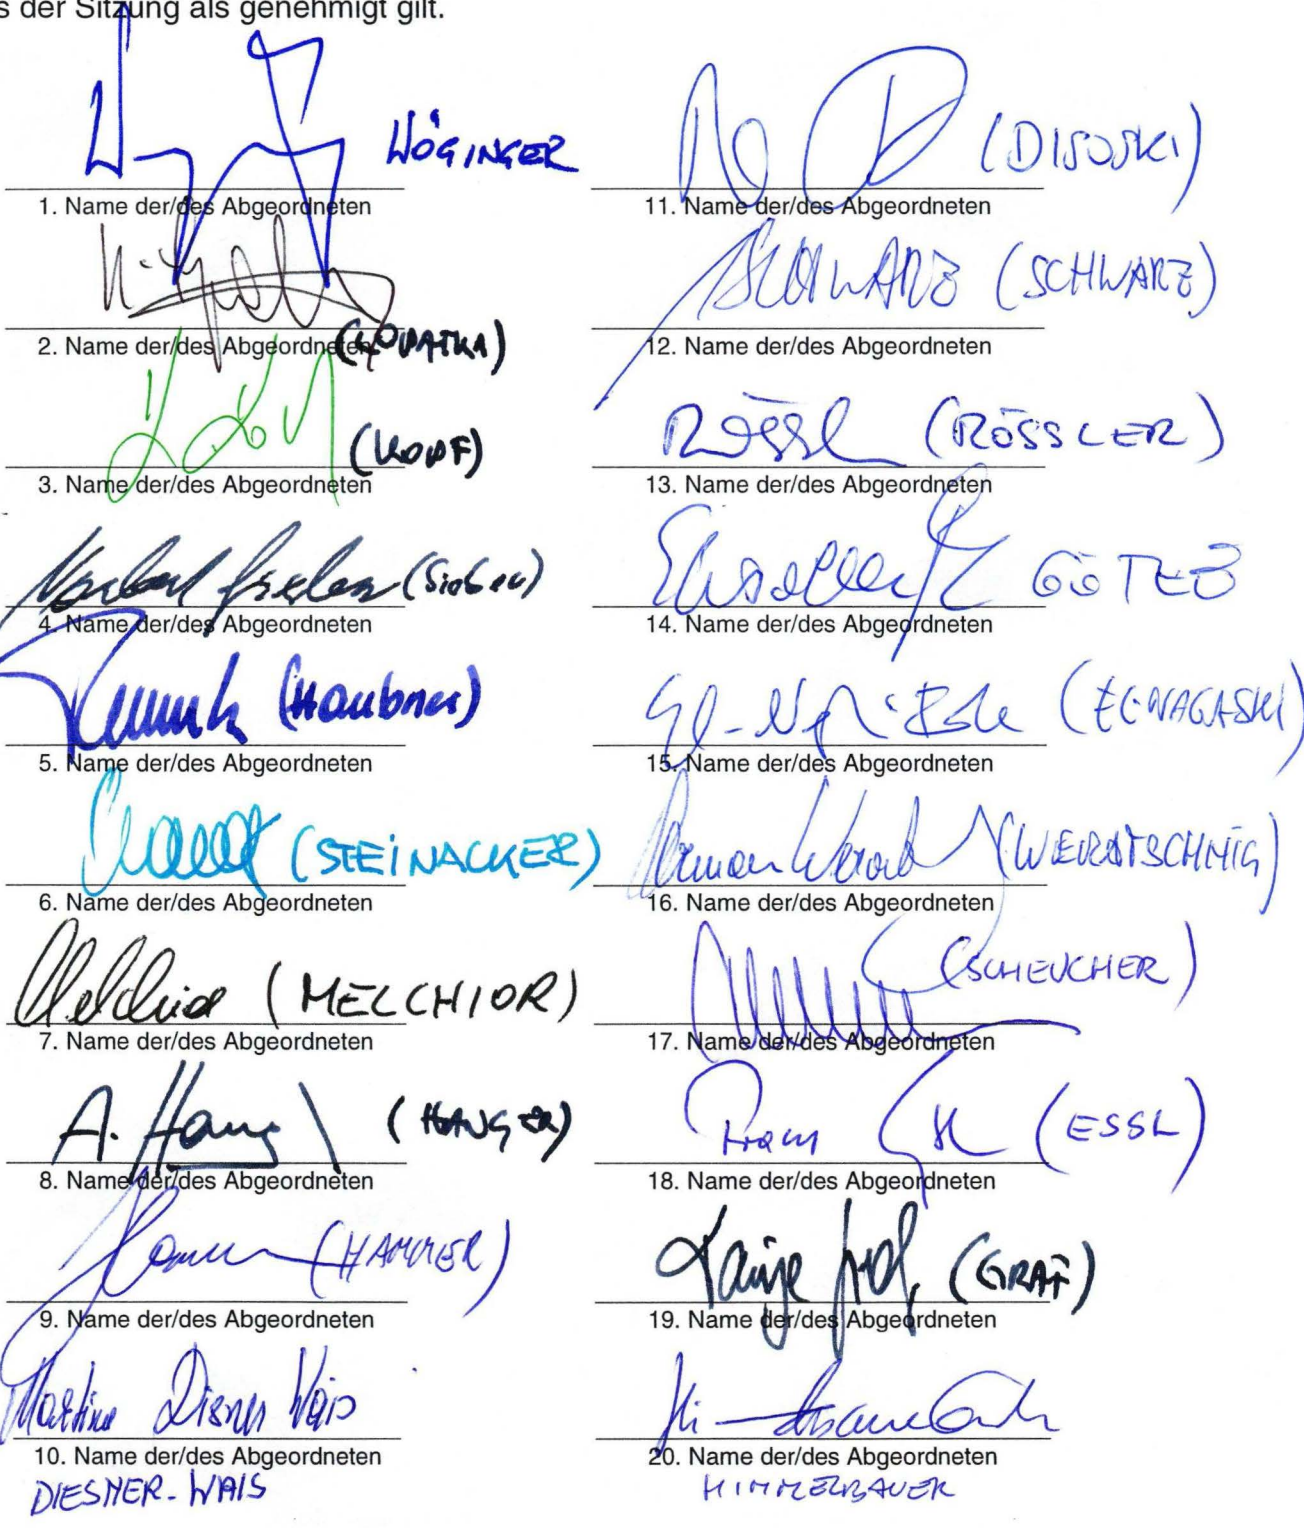 s der Sitzung als genehmigt gilt.
WÖGINGER
1. Name der/des Abgeordneten
(LOPATKA)
2. Name der/des Abgeordneten
(KOPF)
3. Name der/des Abgeordneten
Norbert Sieber (Sieber)
4. Name der/des Abgeordneten
(Haubner)
5. Name der/des Abgeordneten
(STEINACKER)
6. Name der/des Abgeordneten
Melchior (MELCHIOR)
7. Name der/des Abgeordneten
A. Hang (HANGER)
8. Name der/des Abgeordneten
(HAMMER)
9. Name der/des Abgeordneten
Martina Diesner Wais
10. Name der/des Abgeordneten
DIESNER-WAIS
(DISOSKI)
11. Name der/des Abgeordneten
SCHWARZ (SCHWARZ)
12. Name der/des Abgeordneten
Rössl (RÖSSLER)
13. Name der/des Abgeordneten
Elisabeth GÖTZE
14. Name der/des Abgeordneten
15. Name der/des Abgeordneten
Hermann Weratschnig (WERATSCHNIG)
16. Name der/des Abgeordneten
(SCHEUCHER)
17. Name der/des Abgeordneten
Franz (ESSL)
18. Name der/des Abgeordneten
Tanja Graf (GRAF)
19. Name der/des Abgeordneten
20. Name der/des Abgeordneten
HIMMELBAUER